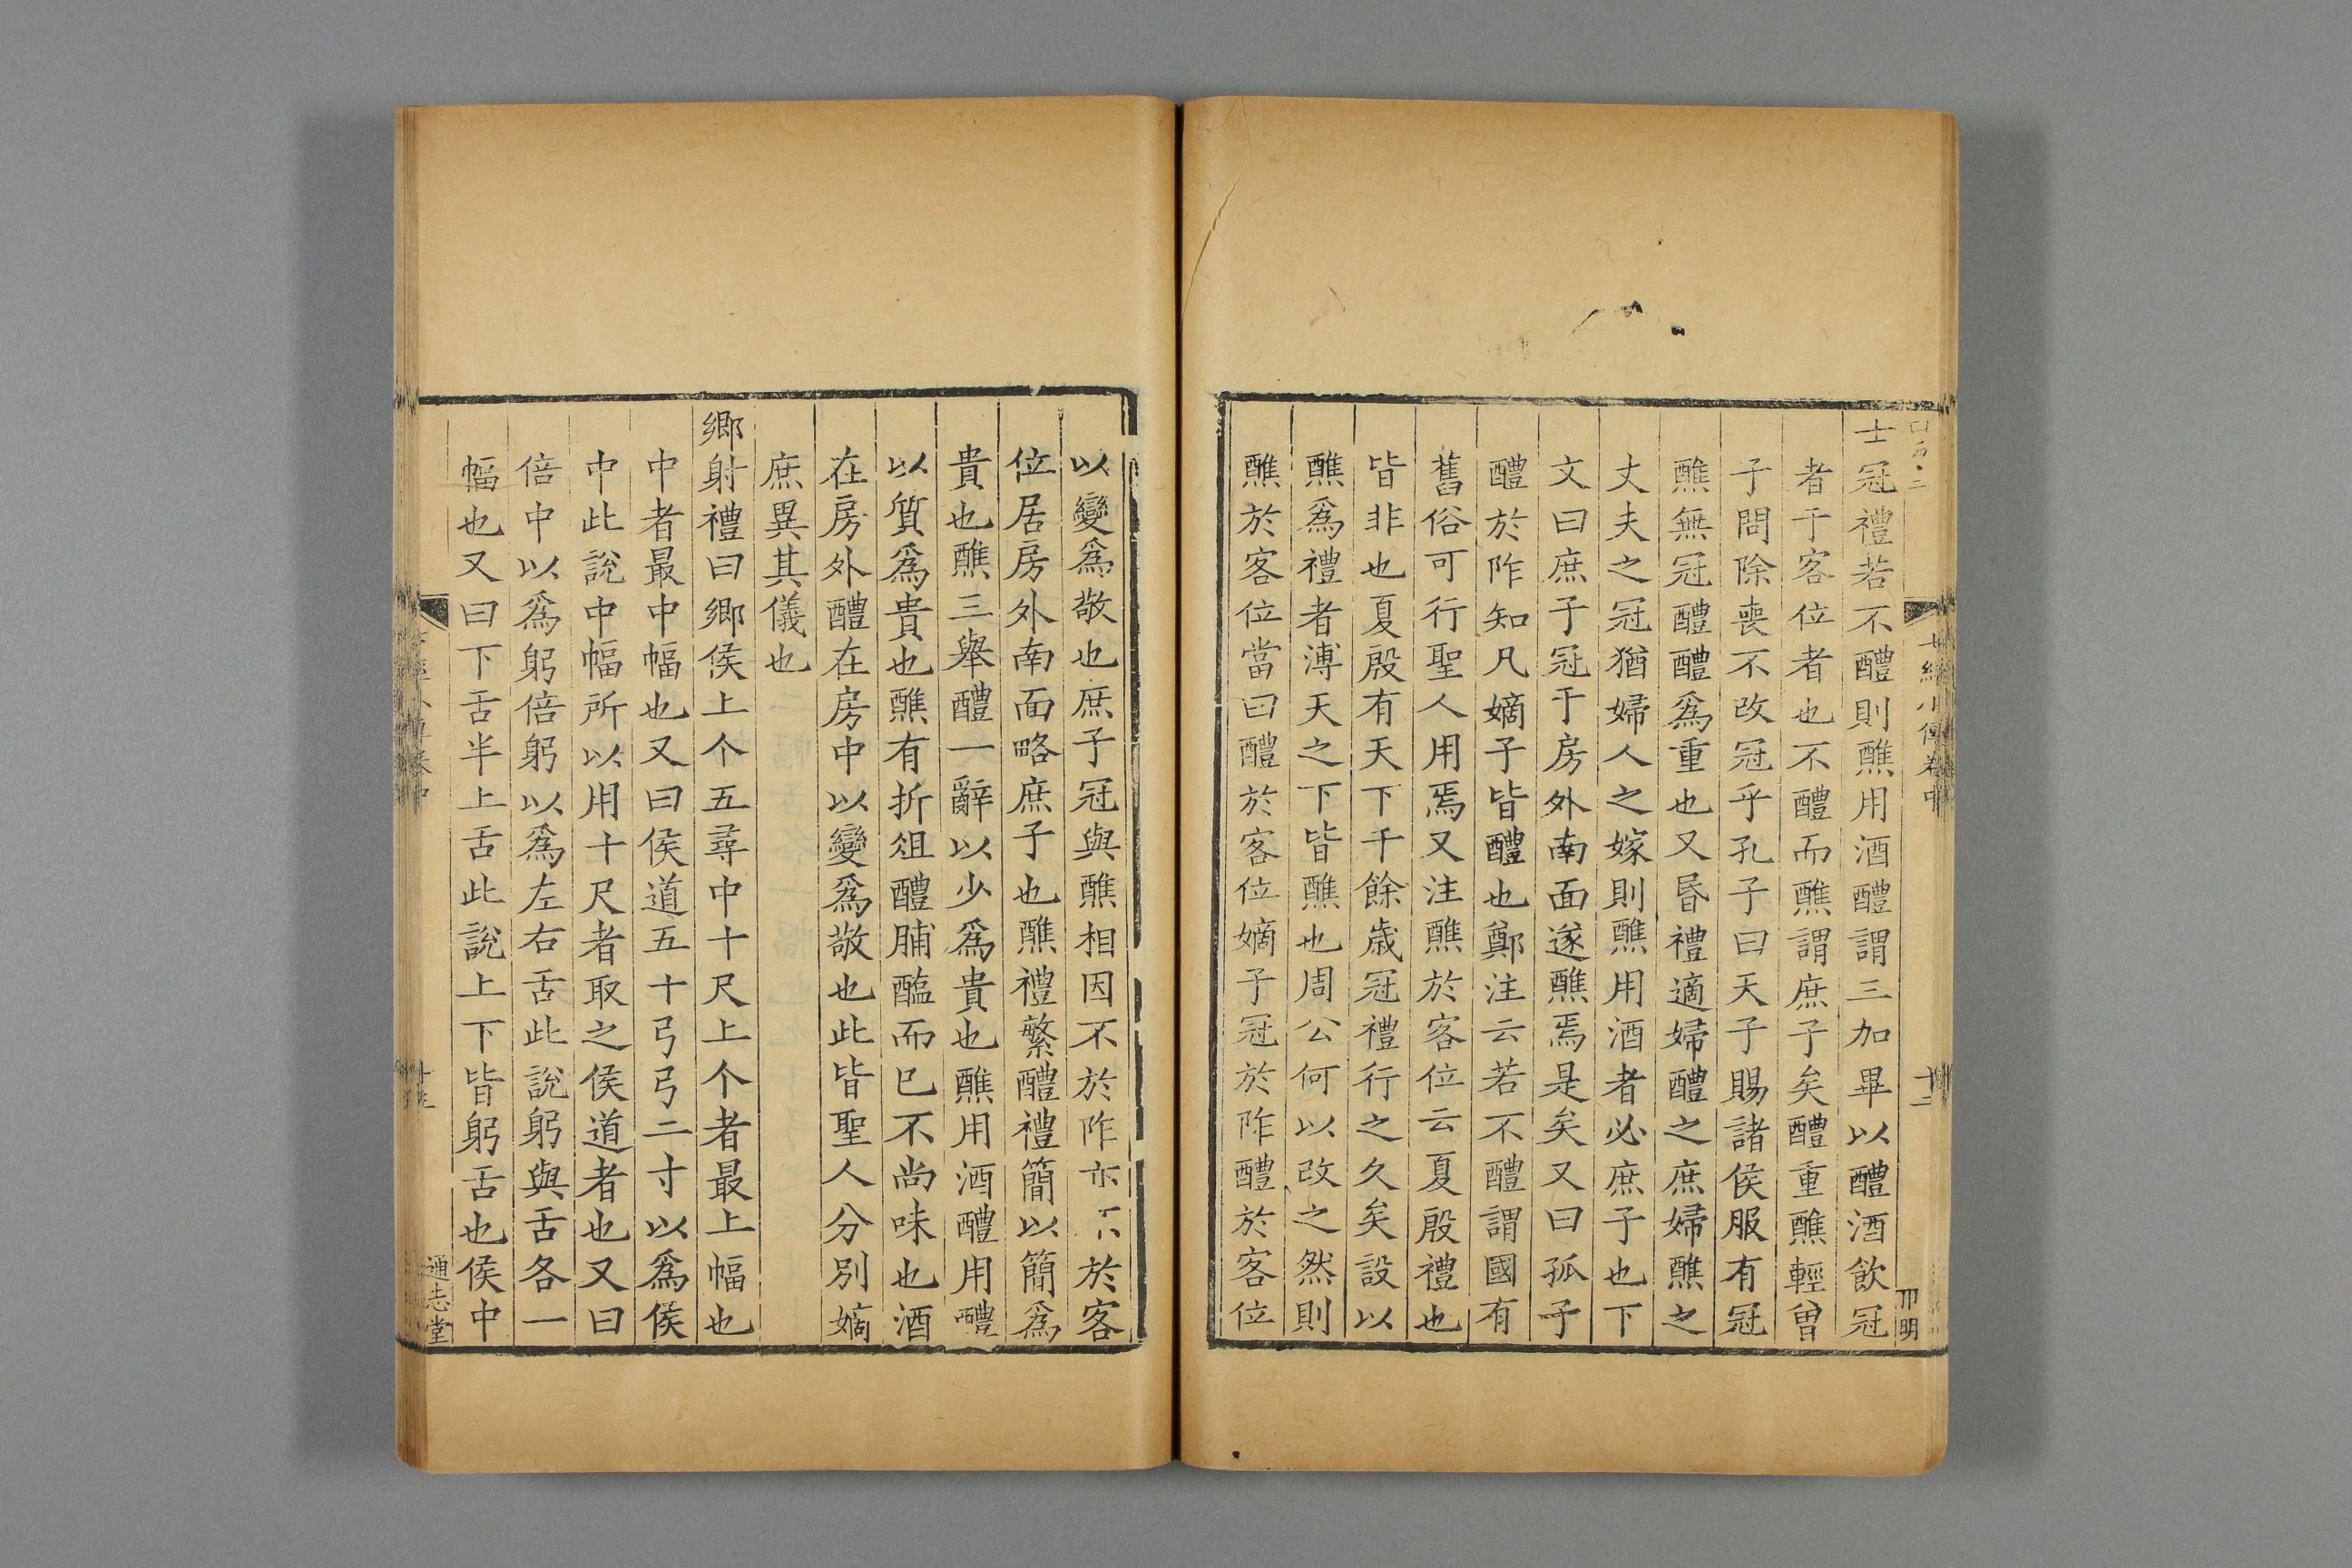 士冠禮若不醴則醮用酒醴謂三加畢以醴酒飲冠
者于客位者也不醴而醮謂庶子矣醴重醮輕曾
子問除喪不改冠乎孔子曰天子賜諸侯服有冠
醮無冠醴醴爲重也又昏禮適婦醴之庶婦醮之
丈夫之冠猶婦人之嫁則醮用酒者必庶子也下
文曰庶子冠于房外南面遂醮焉是矣又曰孤子
醴於阼知凡嫡子皆醴也鄭注云若不醴謂國有
舊俗可行聖人用焉又注醮於客位云夏殷禮也
皆非也夏殷有天下千餘歲冠禮行之久矣設以
醮爲禮者溥天之下皆醮也周公何以改之然則
醮於客位當曰醴於客位嫡子冠於阼醴於客位
七經小傳卷中
十二
以變爲敬也庶子冠與醮相因不於阼亦不於客
位居房外南面略庶子也醮禮繁醴禮簡以簡爲
貴也醮三舉醴一辭以少爲貴也醮用酒醴用醴
以質爲貴也醮有折俎醴脯醢而已不尚味也酒
在房外醴在房中以變爲敬也此皆聖人分別嫡
庶異其儀也
鄉射禮曰鄉侯上个五尋中十尺上个者最上幅也
中者最中幅也又曰侯道五十弓弓二寸以爲侯
中此說中幅所以用十尺者取之侯道者也又曰
倍中以爲躬倍躬以爲左右舌此說躬與舌各一
幅也又曰下舌半上舌此說上下皆躬舌也侯中
通志堂